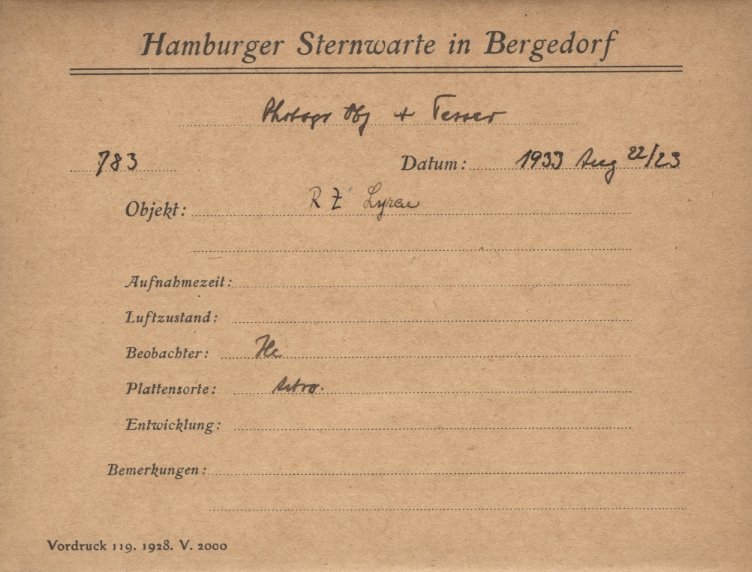 Hamburger Sternwarte in Bergedorf
Photogr Obj + Tesser
783 Datum: 1933 Aug 22/23
Objekt: RZ Lyrae
Aufnahmezeit:
Luftzustand:
Beobachter: He
Plattensorte: Astro.
Entwicklung:
Bemerkungen:
Vordruck 119. 1928. V. 2000